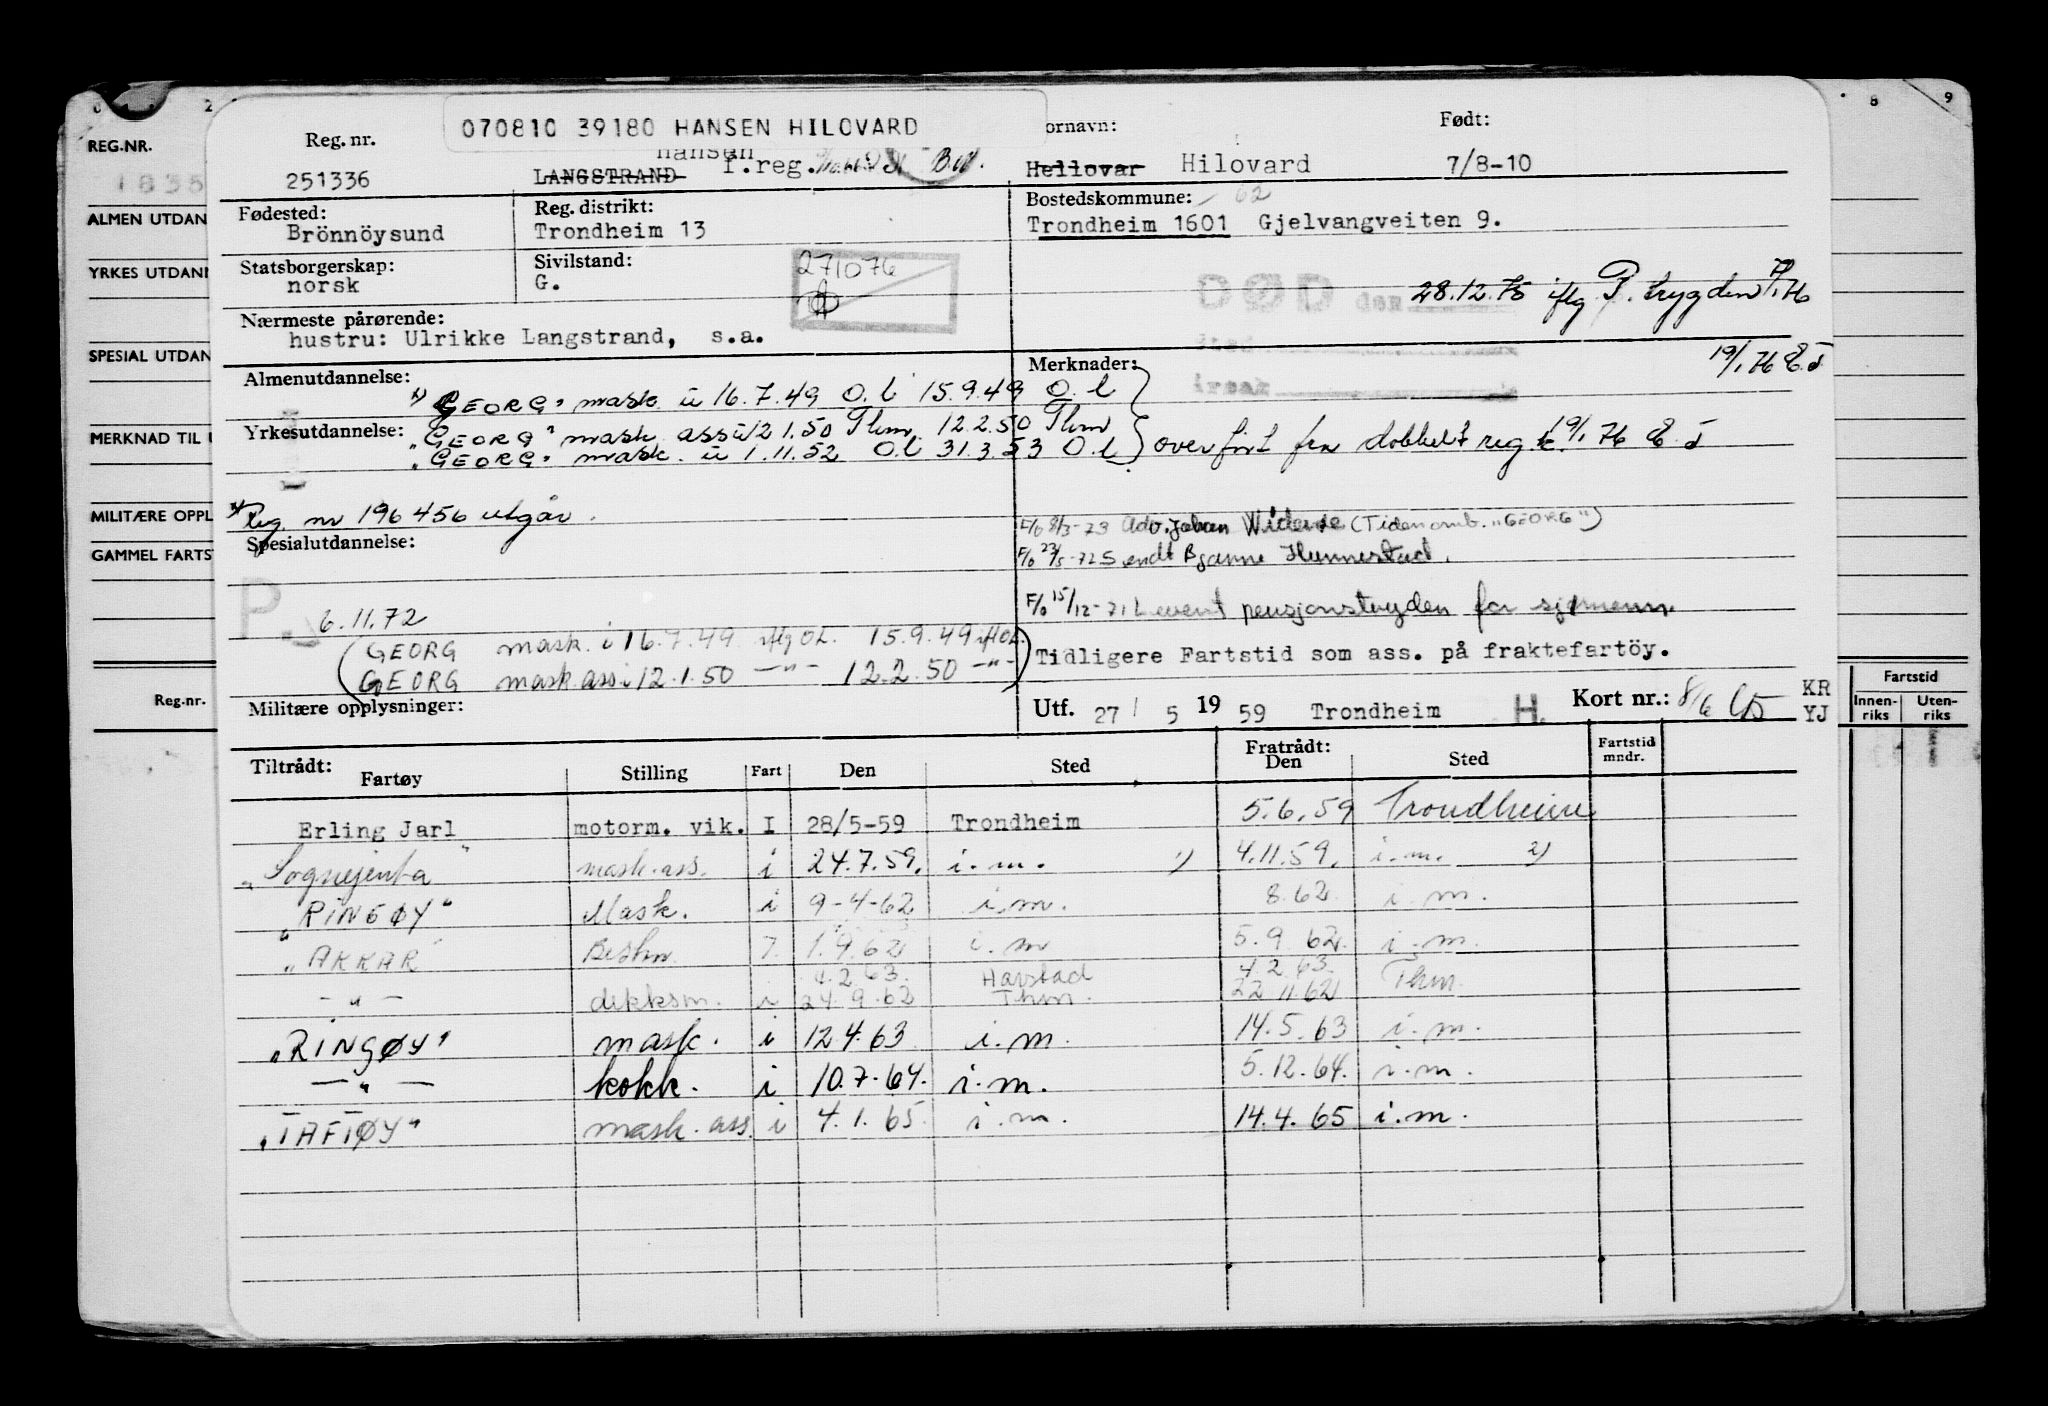 REG.NR.
ALMEN UTDAN
YRKES UTDANN
SPESIAL UTDAN
MERKNAD TIL U
MILITÆRE OPPL
GAMMEL FARTS
Reg.nr.
2
8 9
Fartstid
Innen-riks Uten-riks
070810 39180 HANSEN HILOVARD
Reg. nr. ornavn: Født:
Hansen f.reg.
251336 LANGSTRAND Hellovar Hilovard 7/8-10
Fødested: Reg. distrikt: Bostedskommune: 62
Brönnöysund Trondheim 13 Trondheim 1601 Gjelvangveiten 9.
Statsborgerskap: Sivilstand:
norsk G.
271076
DØD den 28.12.75 iflg P. trygden
Nærmeste pårørende:
hustru: Ulrikke Langstrand, s.a.
årsak
19/1.76 E.J
Almenutdannelse: Merknader:
"GEORG" mask ü 16.7.49 O.l 15.9.49 O.l
Yrkesutdannelse: "GEORG" mask ass ü 12 1.50 Thm 12.2.50 Thm
"GEORG" mask. ü 1.11.52 O.l 31.3.53 O.l } overført fra dobbelt reg.k. 19/1 76 E.J
Reg. nr 196456 utgår.
F/o 8/3-73 Adv. Johan Widerøe (Tidenomb. "GEORG")
Spesialutdannelse:
F/o 23/5-72 Sendt Bjarne Hunnestad.
P.
F/o 15/12-71 Levert pensjonstrygden for sjømenn
6.11.72
(GEORG mask. i 16.7.49 iflg OL. 15.9.49 iflOL.
GEORG mask.ass i 12.1.50 —"— 12.2.50 —"—)
Tidligere Fartstid som ass. på fraktefartöy.
Militære opplysninger:
Utf. 27/ 5 19 59 Trondheim H. Kort nr.: 8/6 KR YJ
Tiltrådt: Fratrådt:
Fartøy Stilling Fart Den Sted Den Sted Fartstid mndr.
Erling Jarl motorm. vik. I 28/5-59 Trondheim 5.6.59 Trondheim
"Sognejenta" mask.ass. i 24.7.59. i.m. 1) 4.11.59. i.m. 2)
"RINGØY" Mask. i 9-4-62 i.m. 8.62. i.m.
"AKKAR" Bestm. I. 1.9.62 i.m 5.9.62. i.m.
4.2.63. Harstad 4.2.63.
—"— dekksm. i 24.9.62 Thm. 22.11.62 Thm.
"RINGØY" mask. i 12.4.63 i.m. 14.5.63 i.m.
—"— kokk. i 10.7.64. i.m. 5.12.64. i.m.
"TAFTØY" mask.ass. i 4.1.65. i.m. 14.4.65 i.m.